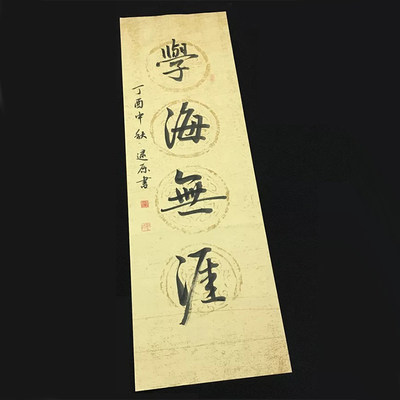 學海無涯
丁酉中秋 退原書